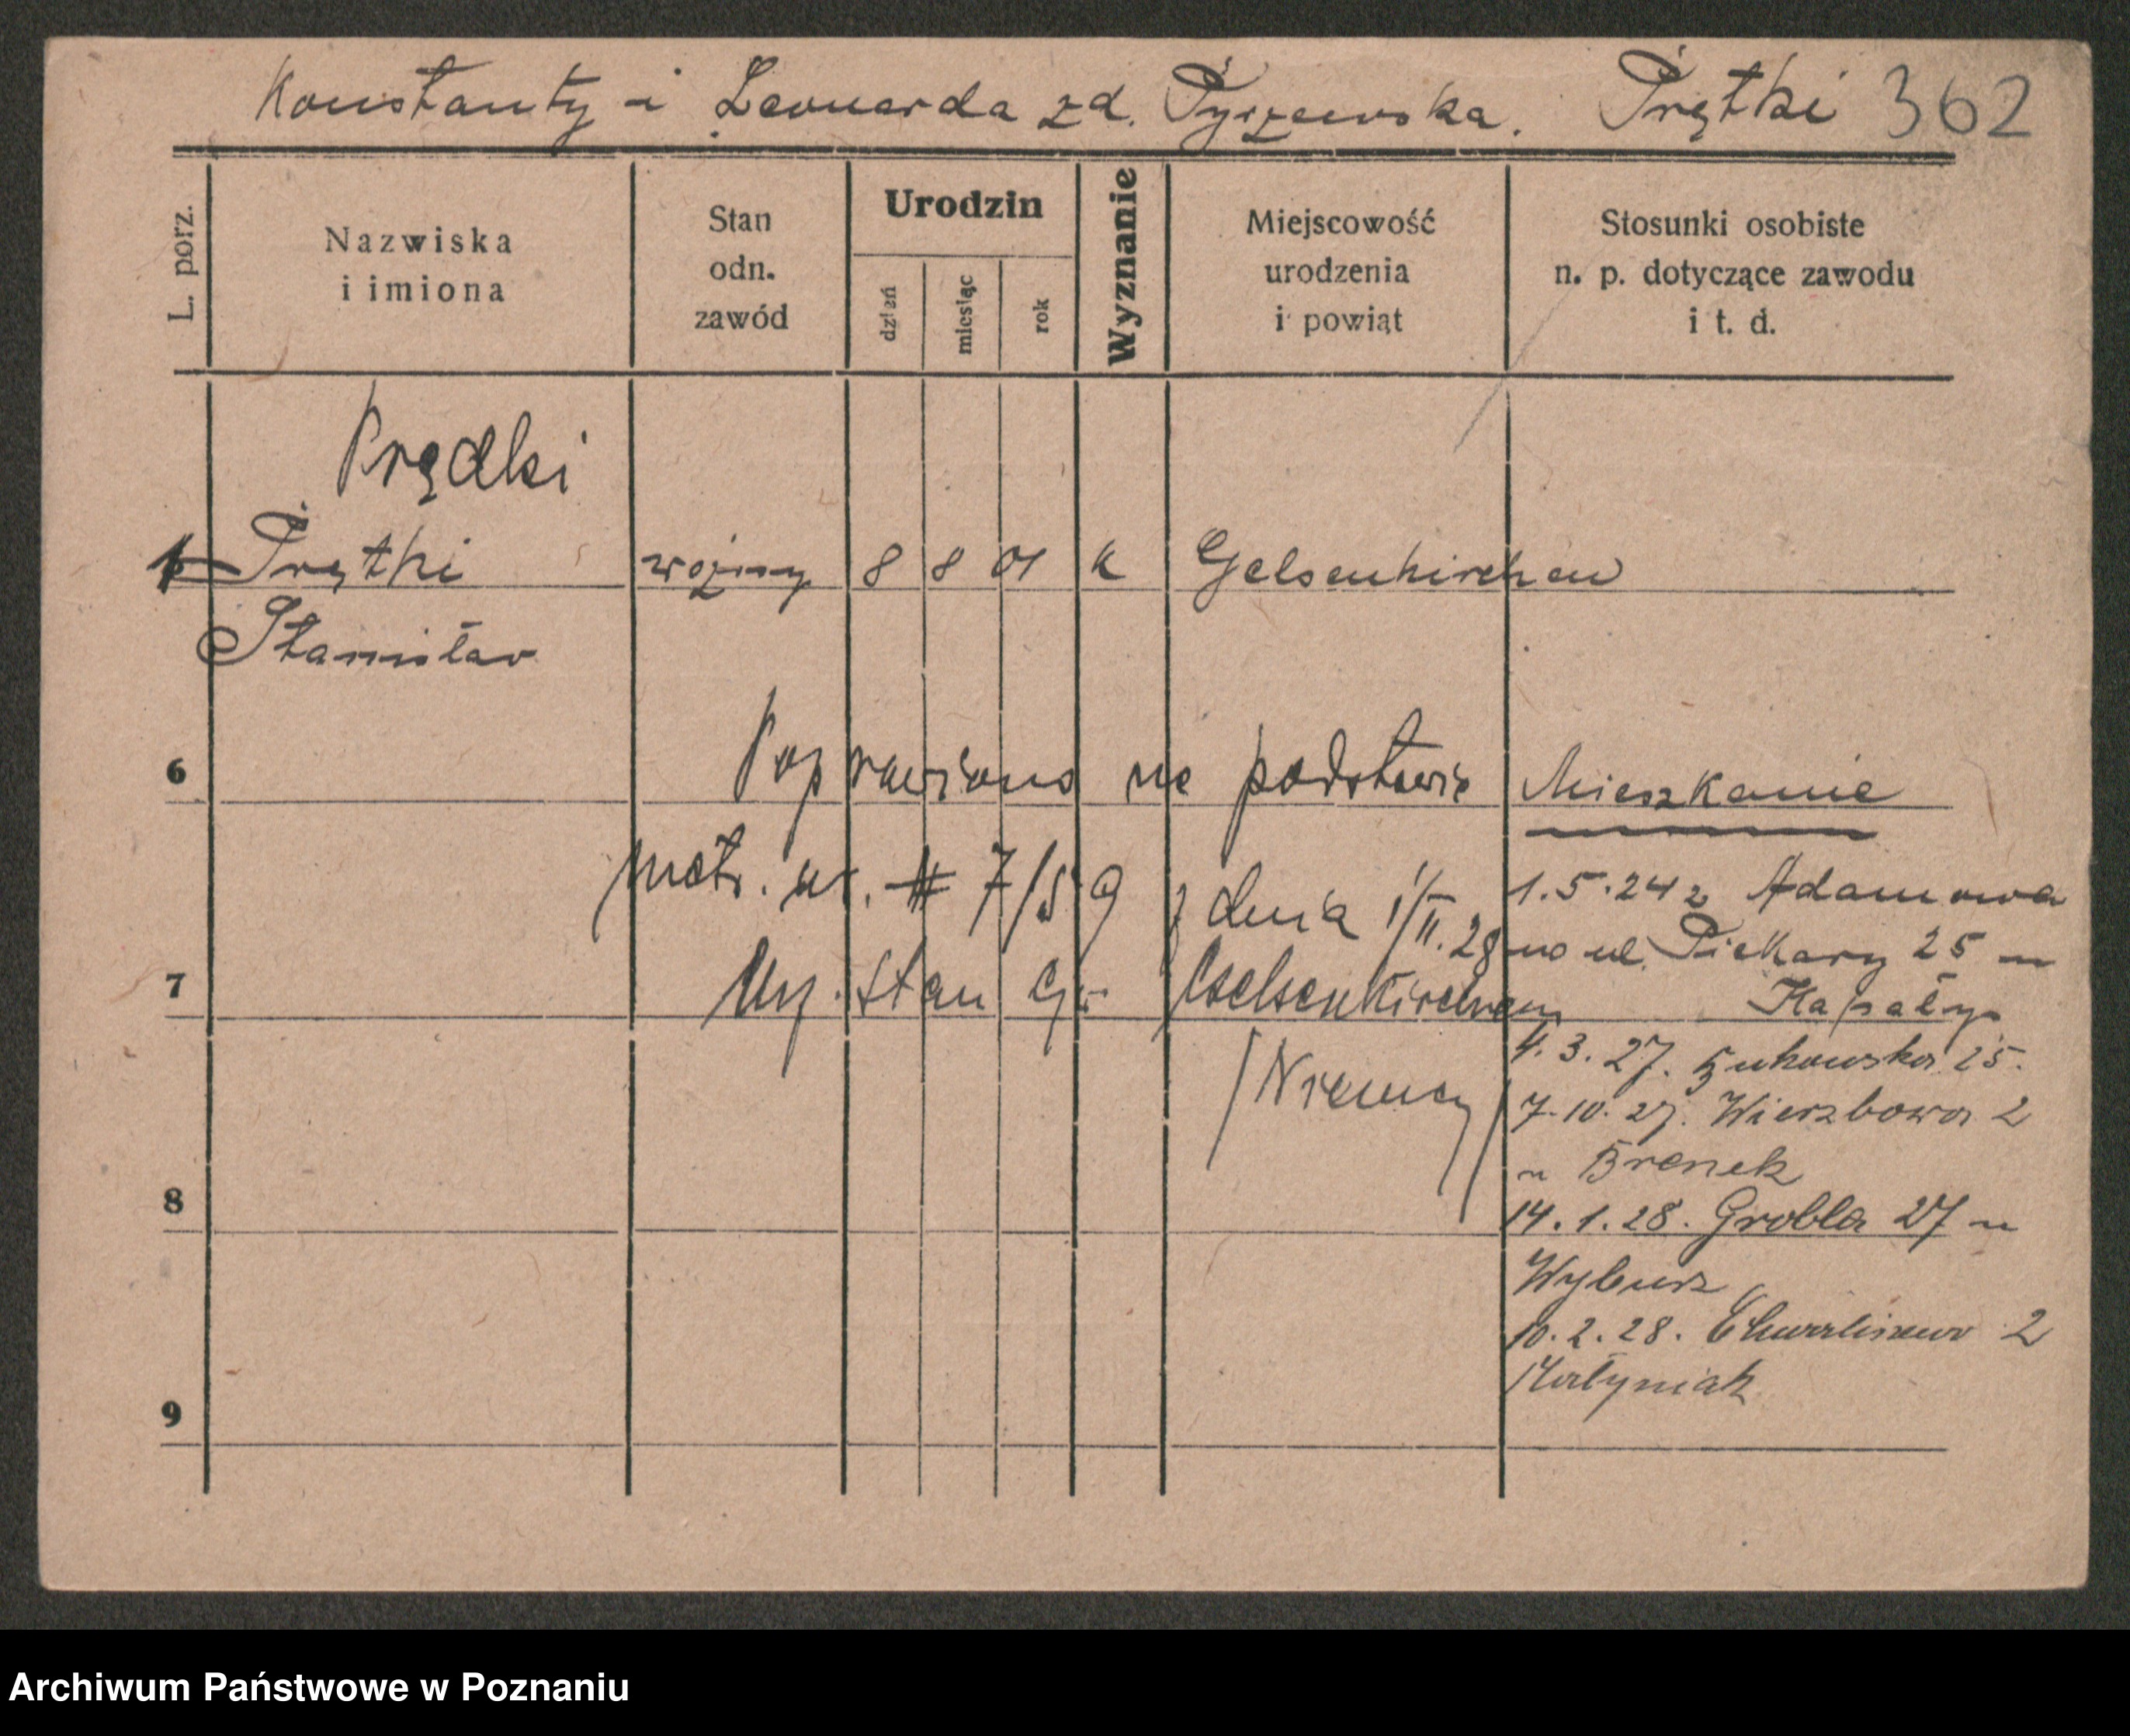 Konstanty i Leonarda zd. Pyszewska. Prętki 362
L. porz.
Nazwiska
i imiona
Stan
odn.
zawód
Urodzin
dzień
miesiąc
rok
Wyznanie
Miejscowość
urodzenia
i powiąt
Stosunki osobiste
n. p. dotyczące zawodu
i t. d.
Prędki
1 Prętki woźny 8 8 01 k Gelsenkirchen
Stanisław
6
Poprawiono na podstawie
metr. ur. # 7/59 z dnia 1/II. 28
Urz. stan Gelsenkirchen
/Niemcy/
Mieszkanie
1.5.24 z Adamowa
na ul. Piekary 25 u
4.3.27. Żukowska 25.
7.10.27. Wierzbowa 2
u Brenek
14.1.28. Grobla 27 u
10.2.28. Chwaliszewo 2
7
8
9
Archiwum Państwowe w Poznaniu